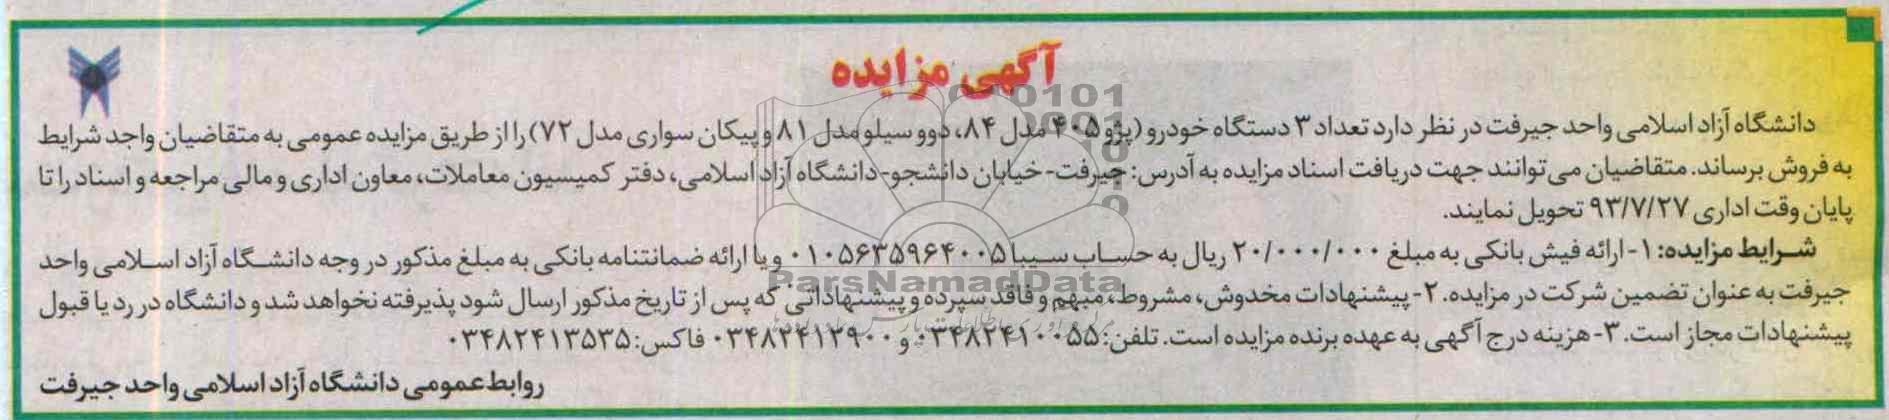 آگهی مزایده
دانشگاه آزاد اسلامی واحد جیرفت در نظر دارد تعداد ۳ دستگاه خودرو (پژو ۴۰۵ مدل ۸۴، دوو سیلو مدل ۸۱ و پیکان سواری مدل ۷۲) را از طریق مزایده عمومی به متقاضیان واجد شرایط
به فروش برساند. متقاضیان می‌توانند جهت دریافت اسناد مزایده به آدرس: جیرفت- خیابان دانشجو- دانشگاه آزاد اسلامی، دفتر کمیسیون معاملات، معاون اداری و مالی مراجعه و اسناد را تا
پایان وقت اداری ۹۳/۷/۲۷ تحویل نمایند.
شرایط مزایده: ۱- ارائه فیش بانکی به مبلغ ۲۰/۰۰۰/۰۰۰ ریال به حساب سیبا ۰۱۰۵۶۳۵۹۶۴۰۰۵ و یا ارائه ضمانتنامه بانکی به مبلغ مذکور در وجه دانشگاه آزاد اسلامی واحد
جیرفت به عنوان تضمین شرکت در مزایده. ۲- پیشنهادات مخدوش، مشروط، مبهم و فاقد سپرده و پیشنهاداتی که پس از تاریخ مذکور ارسال شود پذیرفته نخواهد شد و دانشگاه در رد یا قبول
پیشنهادات مجاز است. ۳- هزینه درج آگهی به عهده برنده مزایده است. تلفن: ۰۳۴۸۲۴۱۰۰۵۵ و ۰۳۴۸۲۴۱۲۹۰۰ فاکس: ۰۳۴۸۲۴۱۳۵۳۵
روابط عمومی دانشگاه آزاد اسلامی واحد جیرفت
ParsNamadData